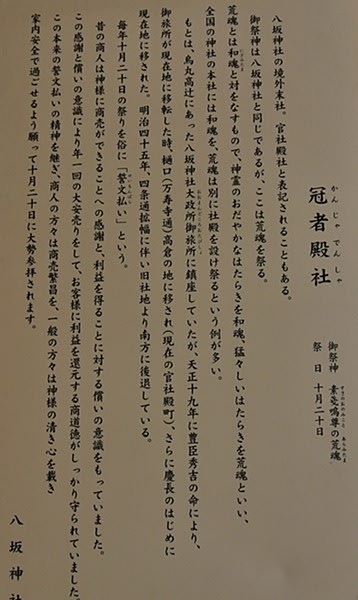 冠者殿社
かんじゃでんしゃ
御祭神 素戔嗚尊の荒魂
すさのおのみこと あらみたま
祭日 十月二十日
八坂神社の境外末社。官社殿社と表記されることもある。
御祭神は八坂神社と同じであるが、ここは荒魂を祭る。
荒魂とは和魂と対をなすもので、神霊のおだやかなはたらきを和魂、猛々しいはたらきを荒魂といい、
にぎみたま
全国の神社の本社には和魂を、荒魂は別に社殿を設け祭るという例が多い。
もとは、烏丸高辻にあった八坂神社大政所御旅所に鎮座していたが、天正十九年に豊臣秀吉の命により、
おおまんどころおたびしょ
御旅所が現在地に移転した時、樋口(万寿寺通)高倉の地に移され(現在の官社殿町)、さらに慶長のはじめに
現在地に移された。明治四十五年、四条通拡幅に伴い旧社地より南方に後退している。
毎年十月二十日の祭りを俗に「誓文払い」という。
せいもんばらい
昔の商人は神様に商売ができることへの感謝と、利益を得ることに対する償いの意識をもっていました。
この感謝と償いの意識により年一回の大安売りをして、お客様に利益を還元する商道徳がしっかり守られていました。
この本来の誓文払いの精神を継ぎ、商人の方々は商売繁昌を、一般の方々は神様の清き心を戴き
家内安全で過ごせるよう願って十月二十日に大勢参拝されます。
八坂神社